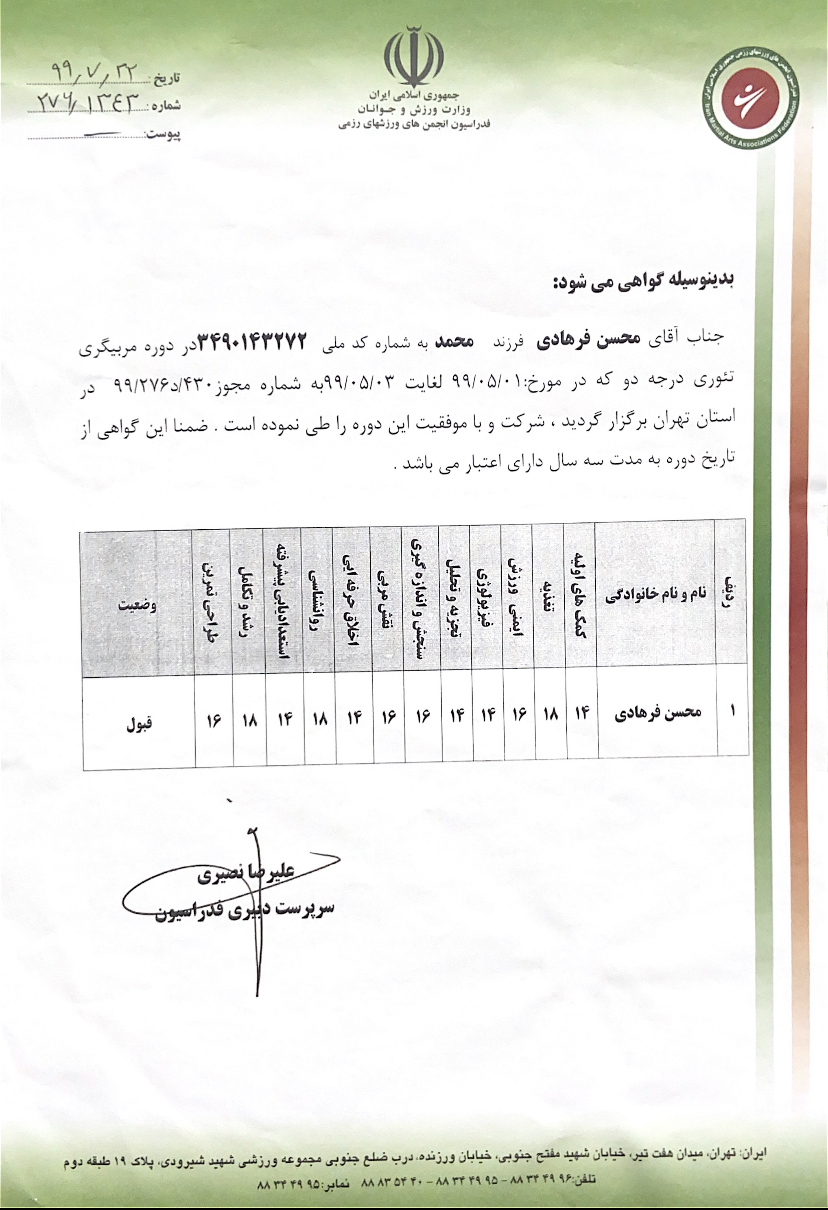 جمهوری اسلامی ایران
وزارت ورزش و جوانان
فدراسیون انجمن های ورزشهای رزمی
تاریخ: ۹۹٫۷٫۲۲
شماره: ۲۷۶٫۱۳۴۳
پیوست: —
فدراسیون انجمن های ورزشهای رزمی جمهوری اسلامی ایران
Iranian Martial Arts Associations Federation
بدینوسیله گواهی می شود:
جناب آقای محسن فرهادی فرزند محمد به شماره کد ملی ۳۴۹۰۱۴۳۲۷۲در دوره مربیگری
تئوری درجه دو که در مورخ:۹۹/۰۵/۰۱ لغایت ۹۹/۰۵/۰۳به شماره مجوز۴۳۰/د۹۹/۲۷۶ در
استان تهران برگزار گردید ، شرکت و با موفقیت این دوره را طی نموده است . ضمنا این گواهی از
تاریخ دوره به مدت سه سال دارای اعتبار می باشد .
ردیف نام و نام خانوادگی کمک های اولیه تغذیه ایمنی ورزش فیزیولوژی تجزیه و تحلیل سنجش و اندازه گیری نقش مربی اخلاق حرفه ایی روانشناسی استعدادیابی پیشرفته رشد و تکامل طراحی تمرین وضعیت
۱ محسن فرهادی ۱۴ ۱۸ ۱۶ ۱۴ ۱۴ ۱۶ ۱۶ ۱۴ ۱۸ ۱۴ ۱۸ ۱۶ قبول
علیرضا نصیری
سرپرست دبیری فدراسیون
ایران: تهران، میدان هفت تیر، خیابان شهید مفتح جنوبی، خیابان ورزنده، درب ضلع جنوبی مجموعه ورزشی شهید شیرودی، پلاک ۱۹ طبقه دوم
تلفن:۹۶ ۴۹ ۳۴ ۸۸ - ۹۵ ۴۹ ۳۴ ۸۸ - ۴۰ ۵۴ ۸۳ ۸۸ نمابر:۹۵ ۴۹ ۳۴ ۸۸